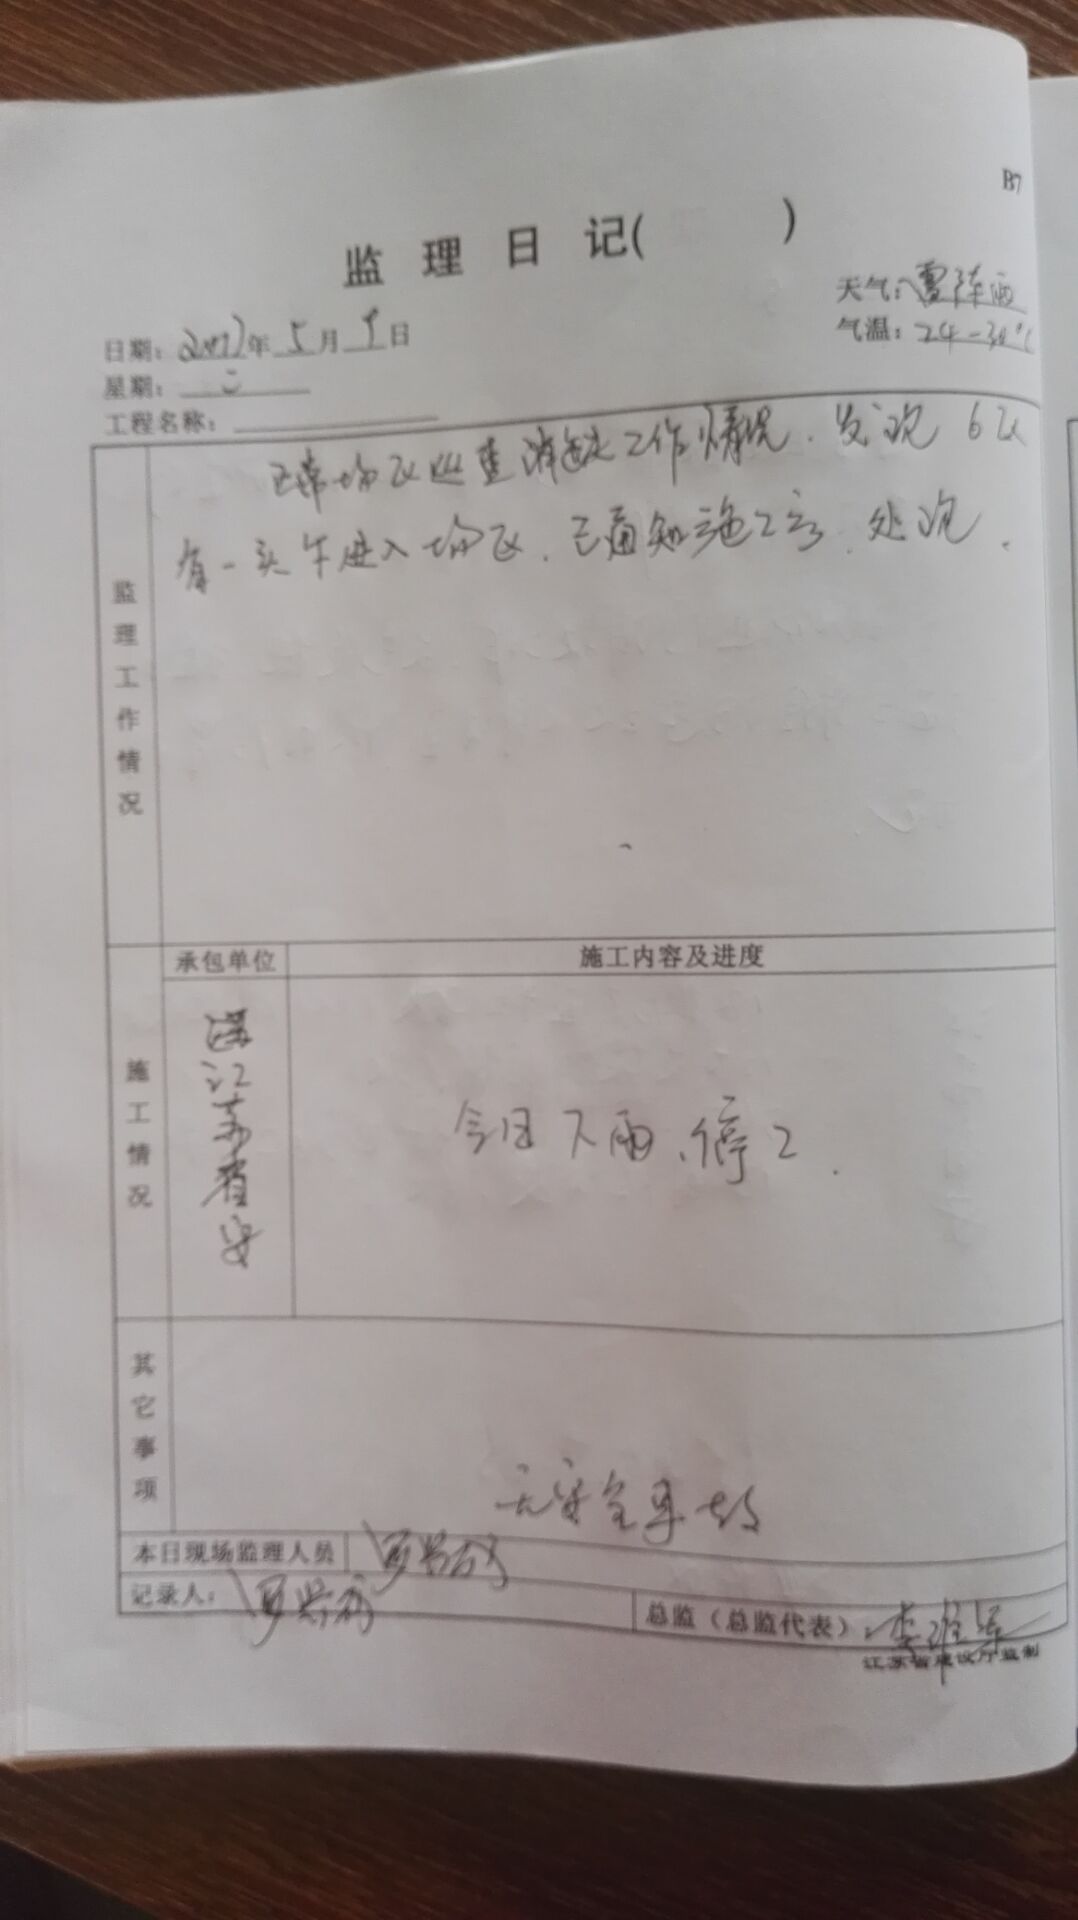 B7
监理日记( )
天气:雷阵雨
日期:2017年5月9日
气温:24-30℃
星期:二
工程名称:
正常场区巡查消缺工作情况、发现6区
有一头牛进入场区、已通知施工方、处理.
监理工作情况
承包单位
施工内容及进度
施工情况
江苏省安
今日下雨、停工.
其它事项
无安全事故
本日现场监理人员
记录人:
总监(总监代表)
江苏省建设厅监制